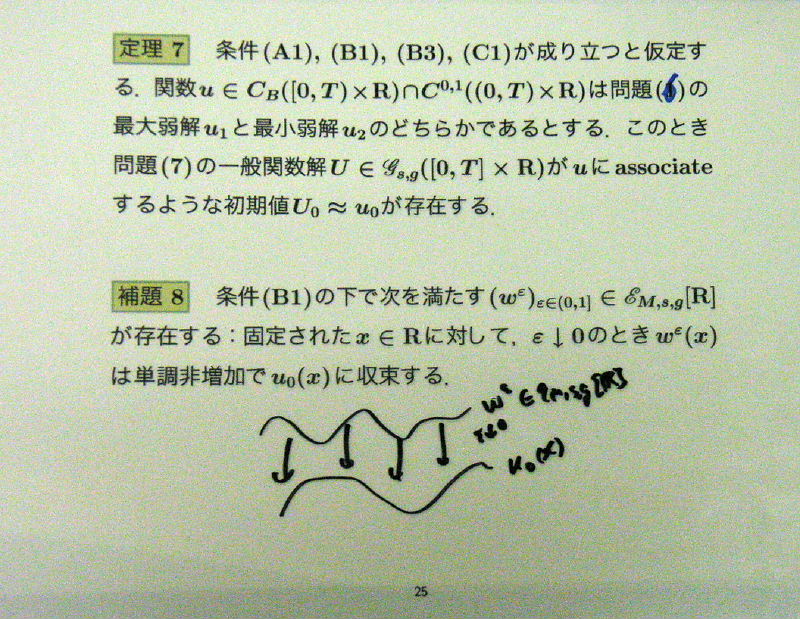 定理 7 条件(A1), (B1), (B3), (C1)が成り立つと仮定す
る．関数u ∈ C_B([0, T) × R)∩C^{0,1}((0, T) × R)は問題(6)の
最大弱解u_1と最小弱解u_2のどちらかであるとする．このとき
問題(7)の一般関数解U ∈ 𝒢_{s,g}([0, T] × R)がuにassociate
するような初期値U_0 ≈ u_0が存在する．
補題 8 条件(B1)の下で次を満たす(w^ε)_{ε∈(0,1]} ∈ ℰ_{M,s,g}[R]
が存在する：固定されたx ∈ Rに対して，ε ↓ 0のときw^ε(x)
は単調非増加でu_0(x)に収束する．
w^ε ∈ ℰ_{M,s,g}[R]
ε↓0
u_0(x)
25